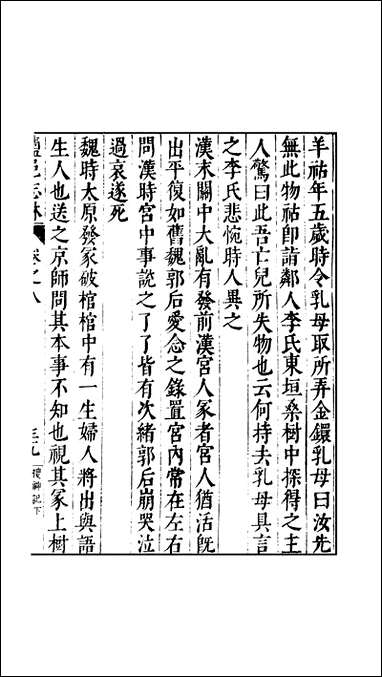 羊祜年五歲時令乳母取所弄金鐶乳母曰汝先
無此物祜卽詣鄰人李氏東垣桑樹中探得之主
人驚曰此吾亡兒所失物也云何持去乳母具言
之李氏悲惋時人異之
漢末關中大亂有發前漢宮人冢者宮人猶活旣
出平復如舊魏郭后愛念之錄置宮內常在左右
問漢時宮中事說之了了皆有次緒郭后崩哭泣
過哀遂死
魏時太原發冢破棺棺中有一生婦人將出與語
生人也送之京師問其本事不知也視其冢上樹
鹽邑志林 卷之八 三九 搜神記下